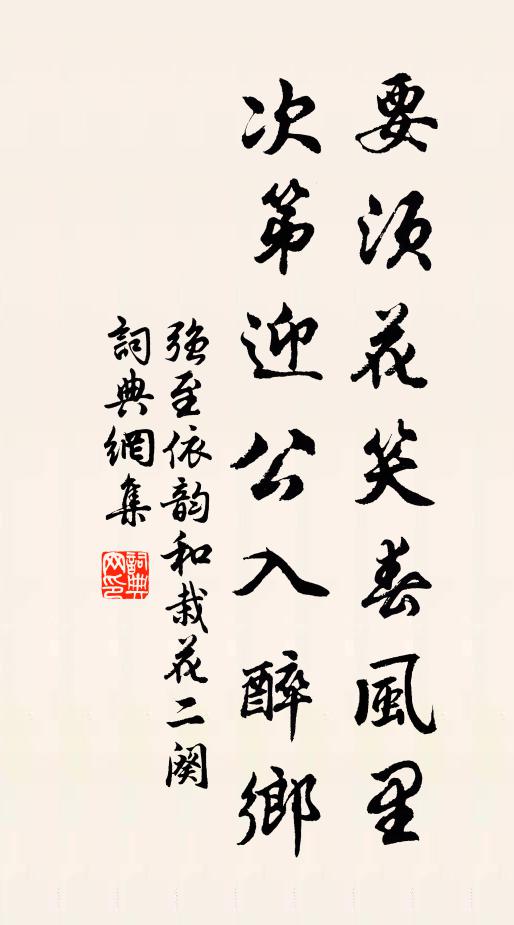 要須花笑春風里
次第迎公入醉鄉
強至依韵和栽花二闋
詞典網集
詞典網印